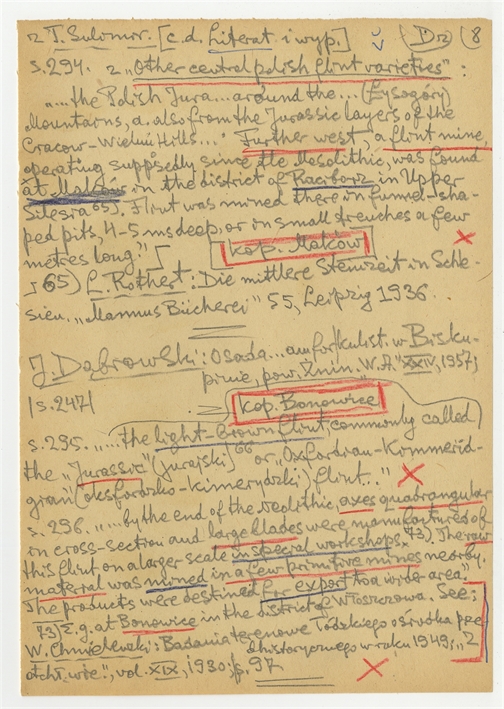 z T. Sulomir. [c.d. Literat. i wyp.] D2) (8
s.294. z "Other central polish flint varieties":
"....the Polish Jura...around the...(Łysogóry)
Mountains, a. also from the Jurassic layers of the
Cracow-Wieluń Hills..." Further west, a flint mine,
operating supposedly since the Mesolithic, was found
at Maków in the district of Racibórz in Upper
Silesia 65). Flint was mined there in funnel-sha-
ped pits, 4-5 ms deep, or in small trenches a few
metres long."] kop. Maków
[65) L. Rothert: Die mittlere Steinzeit in Schle-
sien. "Mannus Bücherei" 55, Leipzig 1936.
J. Dąbrowski: Osada... amfor kulist. w Bisku-
pinie, pow. Żnin. W.A. XXIV, 1957;
|s.247| kop. Bonowice
s.295. "....the light-brown flint commonly called
the "Jurassic" (jurajski) 66 or "Oxfordian-Kimmerid-
gian" (oksfordzko-kimerydzki) flint.."
s. 296. "....by the end of the neolithic, axes quadrangular
in cross-section and large blades were manufactured of
this flint on a larger scale in special workshops. 73) The raw
material was mined in a few primitive mines nearby.
The products were destined for export to a wide area."
73) E.g. at Bonowice in the district of Włoszczowa. See:
W. Chmielewski: Badania terenowe Łódzkiego ośrodka pre
dhistorycznego w roku 1949; "Z
otchł. wie.", vol. XIX, 1930: p. 97